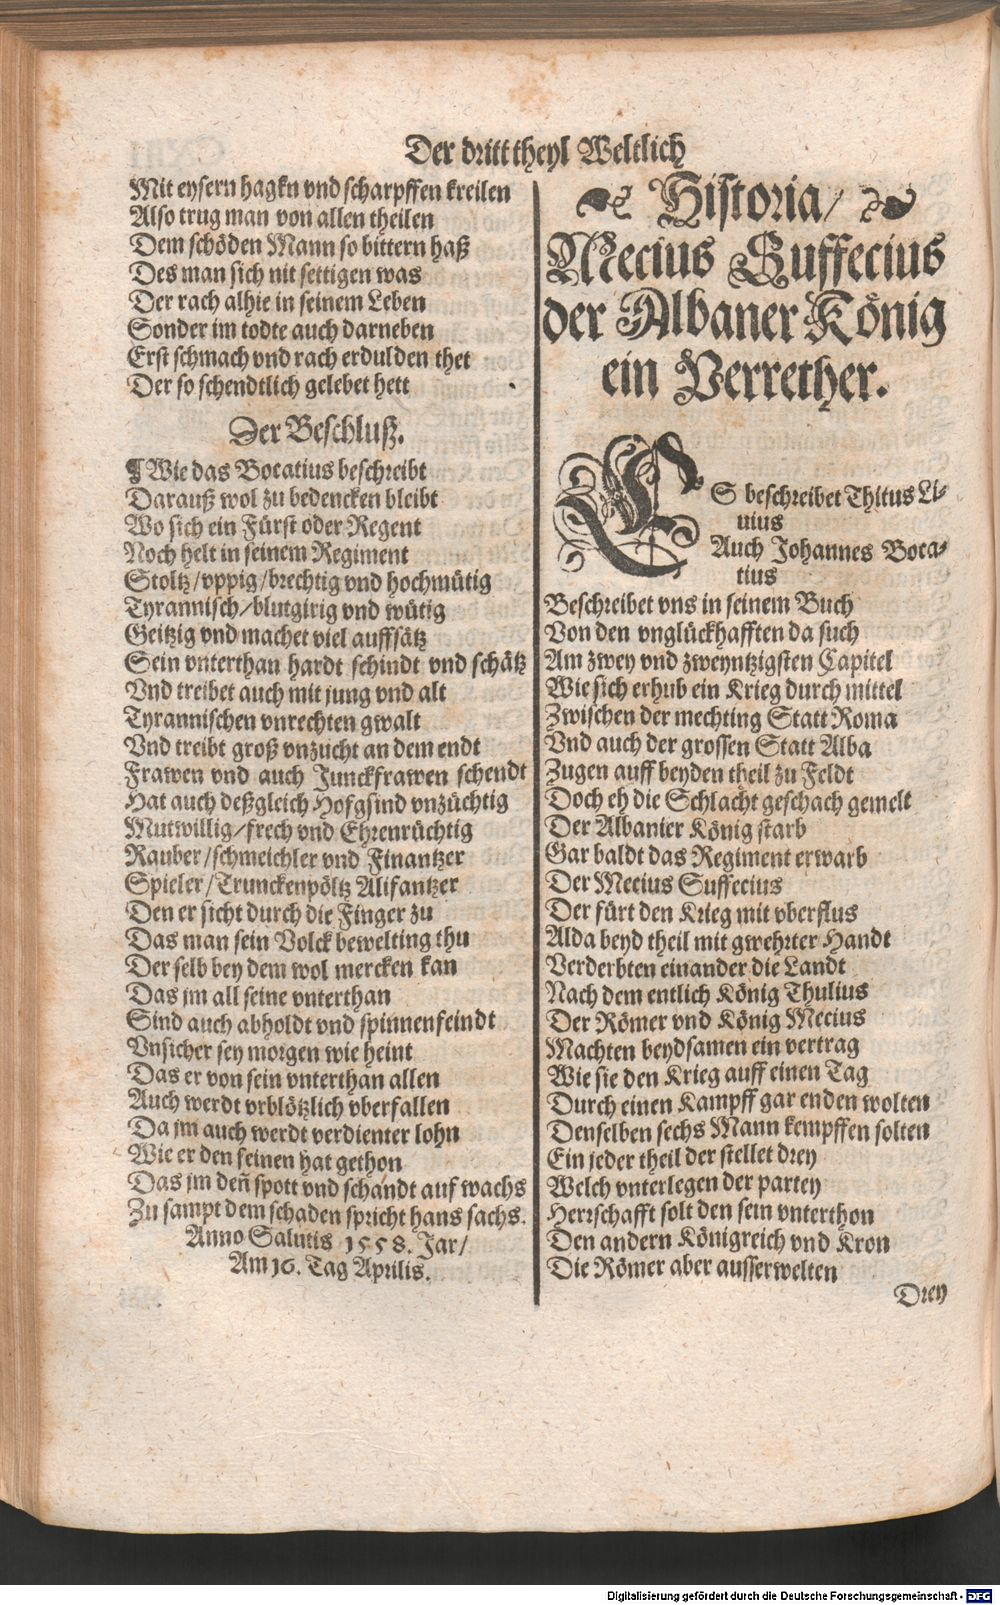 Der dritt theyl Weltlich
Mit eysern hagkn vnd scharpffen kreilen
Also trug man von allen theilen
Dem schöden Mann so bittern haß
Des man sich nit settigen was
Der rach alhie in seinem Leben
Sonder im todte auch darneben
Erst schmach vnd rach erdulden thet
Der so schendtlich gelebet hett
Der Beschluß.
¶ Wie das Bocatius beschreibt
Darauß wol zu bedencken bleibt
Wo sich ein Fürst oder Regent
Noch helt in seinem Regiment
Stoltz/vppig/brechtig vnd hochmütig
Tyrannisch/blutgirig vnd wütig
Geitzig vnd machet viel auffsätz
Sein vnterthan hardt schindt vnd schätz
Vnd treibet auch mit jung vnd alt
Tyrannischen vnrechten gwalt
Vnd treibt groß vnzucht an dem endt
Frawen vnd auch Junckfrawen schendt
Hat auch deßgleich Hofgsind vnzüchtig
Mutwillig/frech vnd Ehrenrüchtig
Rauber/schmeichler vnd Finantzer
Spieler/Trunckenpöltz Alifantzer
Den er sicht durch die Finger zu
Das man sein Volck bewelting thu
Der selb bey dem wol mercken kan
Das jm all seine vnterthan
Sind auch abholdt vnd spinnenfeindt
Vnsicher sey morgen wie heint
Das er von sein vnterthan allen
Auch werdt vrblötzlich vberfallen
Da jm auch werdt verdienter lohn
Wie er den seinen hat gethon
Das jm deñ spott vnd schandt auf wachs
Zu sampt dem schaden spricht hans sachs.
Anno Salutis 1558. Jar/
Am 16. Tag Aprilis.
Historia/
Mecius Suffecius
der Albaner König
ein Verrether.
ES beschreibet Thitus Li-
uius
Auch Johannes Boca-
tius
Beschreibet vns in seinem Buch
Von den vnglückhafften da such
Am zwey vnd zweyntzigsten Capitel
Wie sich erhub ein Krieg durch mittel
Zwischen der mechting Statt Roma
Vnd auch der grossen Statt Alba
Zugen auff beyden theil zu Feldt
Doch eh die Schlacht geschach gemelt
Der Albanier König starb
Gar baldt das Regiment erwarb
Der Mecius Suffecius
Der fürt den Krieg mit vberflus
Alda beyd theil mit gwehrter Handt
Verderbten einander die Landt
Nach dem entlich König Thulius
Der Römer vnd König Mecius
Machten beydsamen ein vertrag
Wie sie den Krieg auff einen Tag
Durch einen Kampff gar enden wolten
Denselben sechs Mann kempffen solten
Ein jeder theil der stellet drey
Welch vnterlegen der partey
Herrschafft solt den sein vnterthon
Den andern Königreich vnd Kron
Die Römer aber ausserwelten
Drey
Digitalisierung gefördert durch die Deutsche Forschungsgemeinschaft - DFG